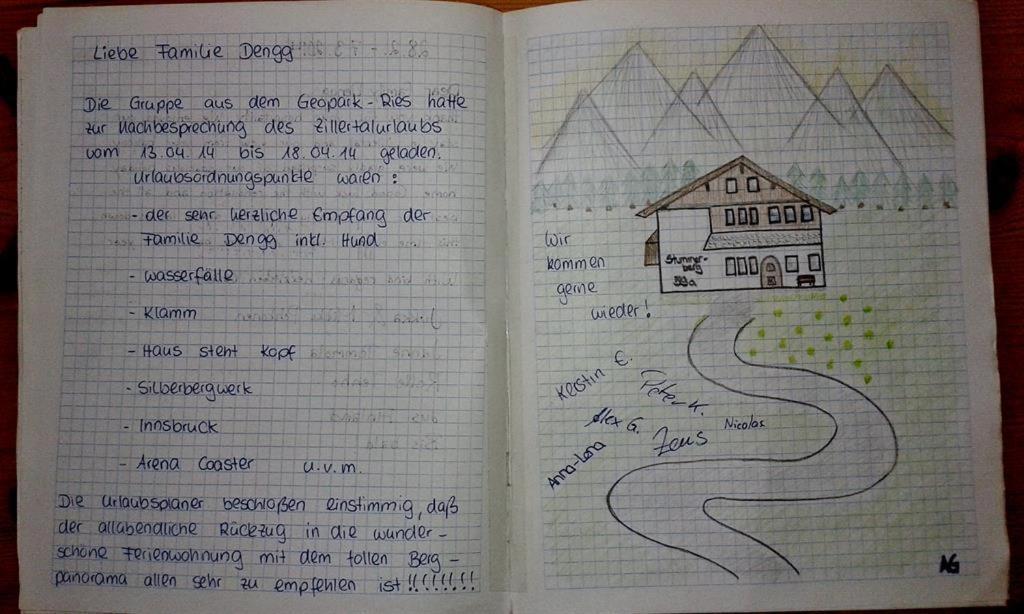 Liebe Familie Dengg
Die Gruppe aus dem Geopark-Ries hatte
zur Nachbesprechung des Zillertalurlaubs
vom 13.04.14 bis 18.04.14 geladen.
Urlaubsordnungspunkte waren:
- der sehr herzliche Empfang der
Familie Dengg inkl. Hund
- Wasserfälle
- Klamm
- Haus steht Kopf
- Silberbergwerk
- Innsbruck
- Arena Coaster u.v.m.
Die Urlaubsplaner beschloßen einstimmig, daß
der allabendliche Rückzug in die wunder-
schöne Ferienwohnung mit dem tollen Berg-
panorama allen sehr zu empfehlen ist!!!!!!!!
Wir
kommen
gerne
wieder!
Stummer-
berg
39a
Kerstin E.
Peter K.
Alex G.
Zeus
Nicolas
Anna-Lena
AG